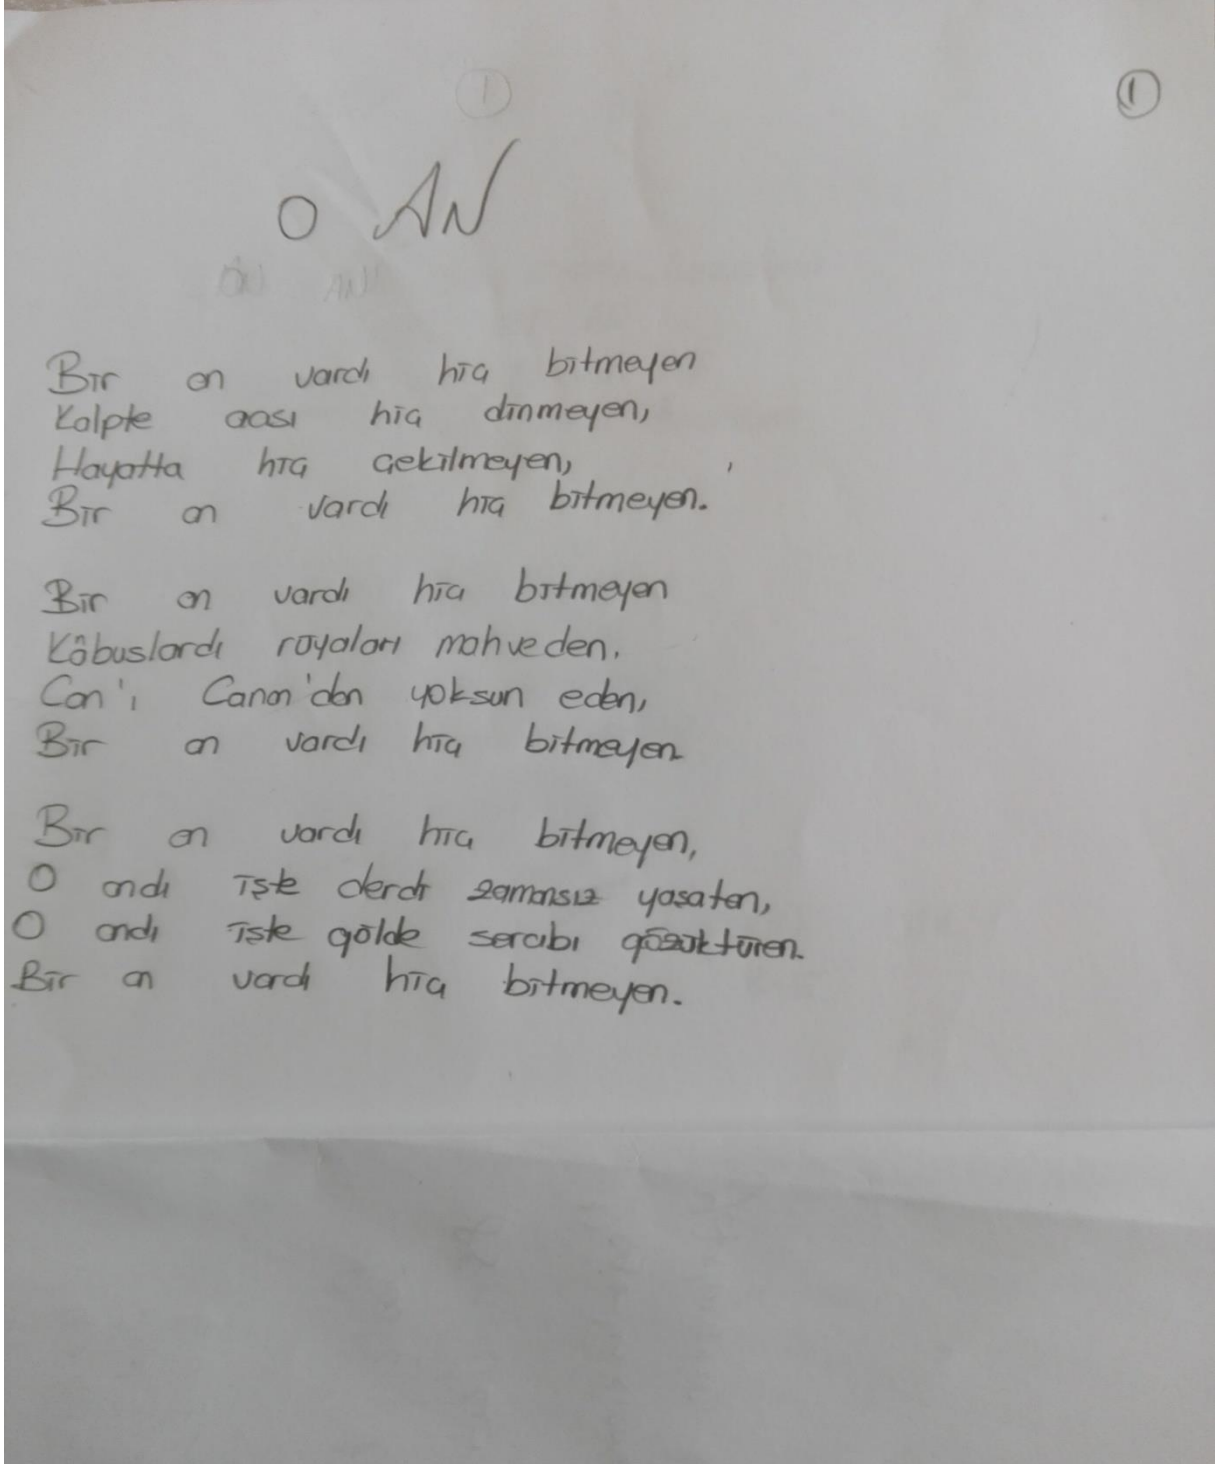 ①
①
O AN
Bir an vardı hiç bitmeyen
Kalpte acısı hiç dinmeyen,
Hayatta hiç çekilmeyen,
Bir an vardı hiç bitmeyen.
Bir an vardı hiç bitmeyen
Kâbuslardı rüyaları mahveden.
Can'ı Canan'dan yoksun eden,
Bir an vardı hiç bitmeyen
Bir an vardı hiç bitmeyen,
O andı işte derdi zamansız yaşatan,
O andı işte çölde serabı gözüktüren.
Bir an vardı hiç bitmeyen.